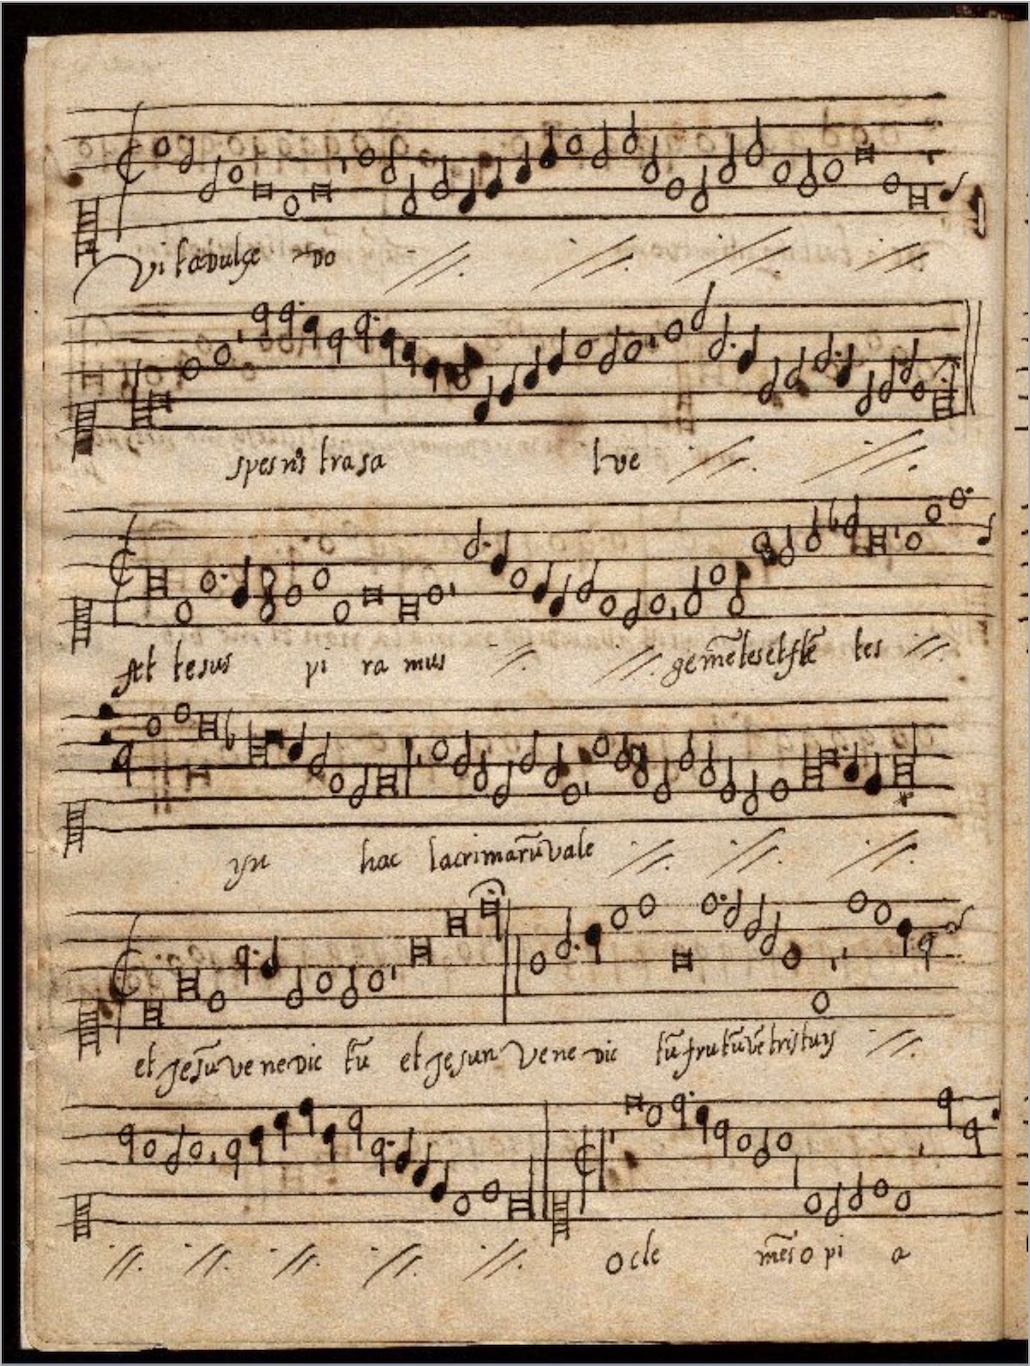 Vitadulçe do
spes nr̃s tra sa lve
Ad te sus pi ra mus gemẽtes et flẽ tes
yn hac lacrimarũ vale
et Jesũ ve ne dic tũ et Jesun Ve ne dic tũ frutũ vẽtris tuis
O cle mẽs o pi a